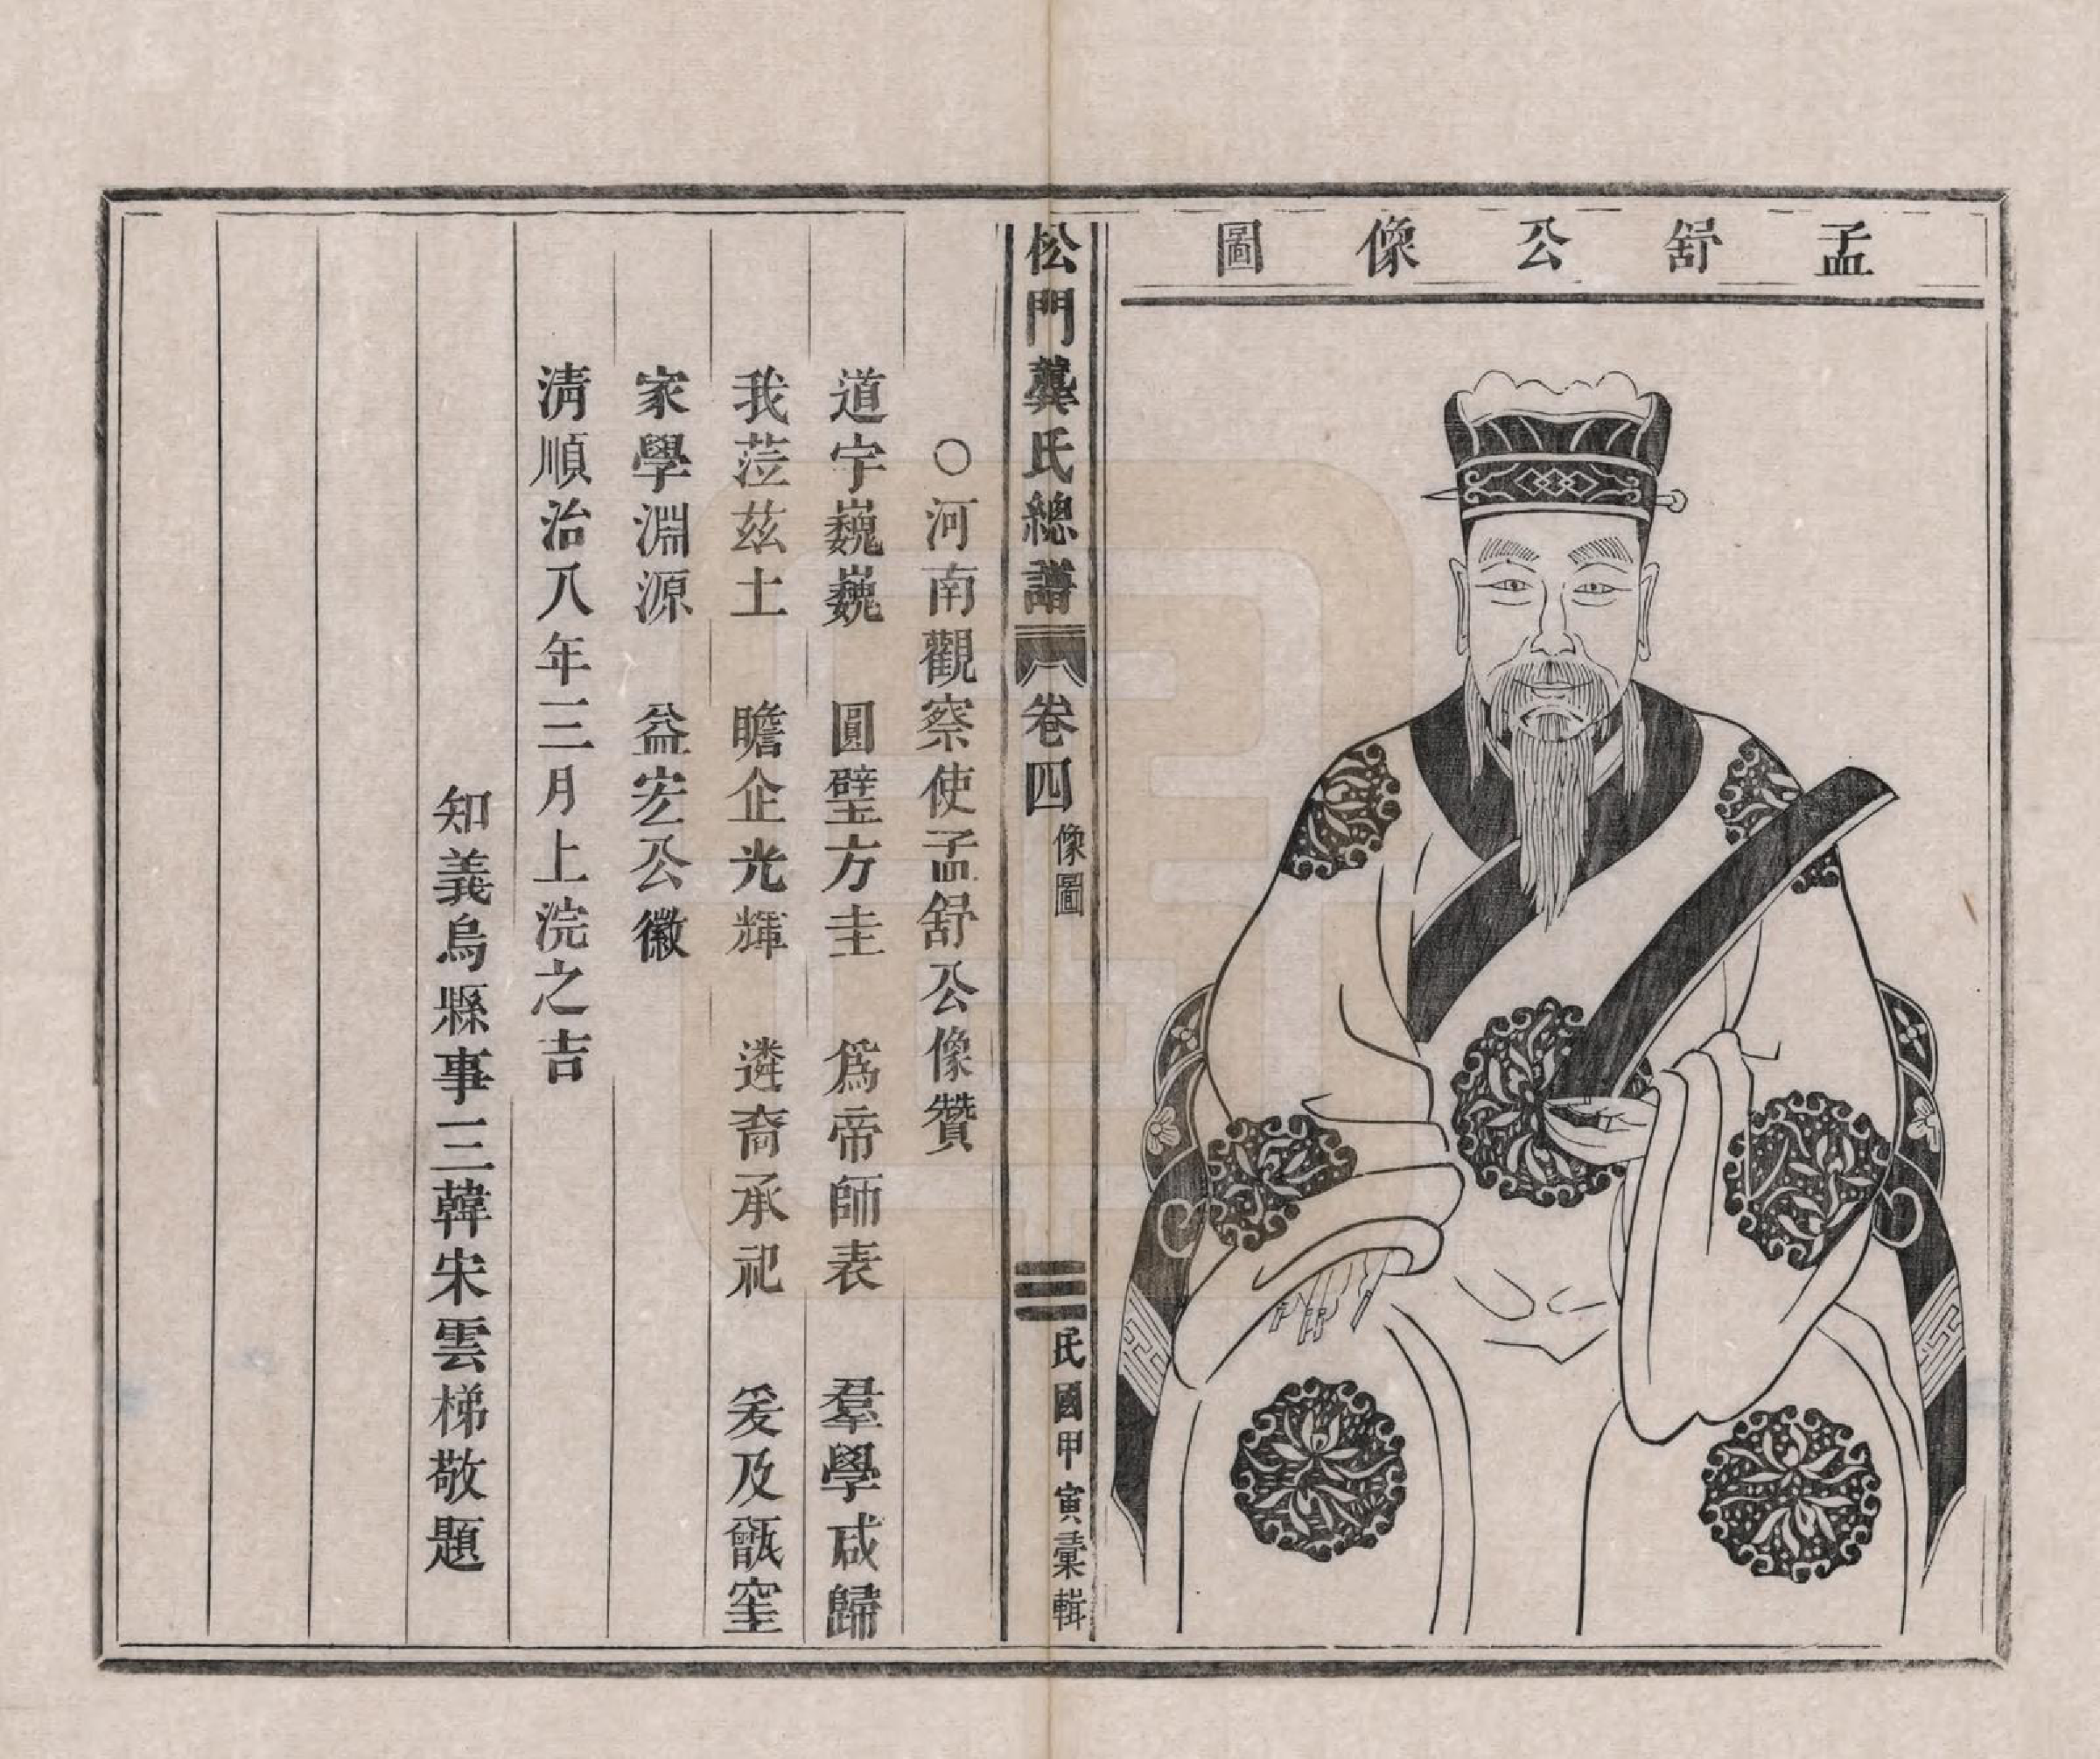 孟舒公像圖
松門龔氏總譜 卷四 像圖 三 民國甲寅彙輯
○河南觀察使孟舒公像贊
道宇巍巍 圓璧方圭 爲帝師表 羣學咸歸
我蒞茲土 瞻企光輝 遴裔承祀 爰及甑窐
家學淵源 益宏公徽
清順治八年三月上浣之吉
知義烏縣事三韓宋雲梯敬題